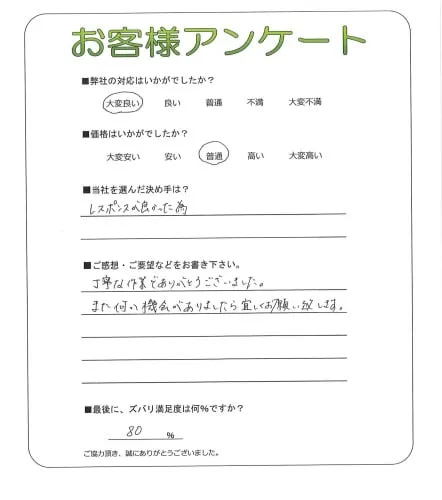 お客様アンケート
■弊社の対応はいかがでしたか?
大変良い 良い 普通 不満 大変不満
■価格はいかがでしたか?
大変安い 安い 普通 高い 大変高い
■当社を選んだ決め手は?
レスポンスが良かった為
■ご感想・ご要望などをお書き下さい。
丁寧な作業でありがとうございました。
また何かの機会がありましたら宜しくお願い致します。
■最後に、ズバリ満足度は何%ですか?
80 %
ご協力頂き、誠にありがとうございました。